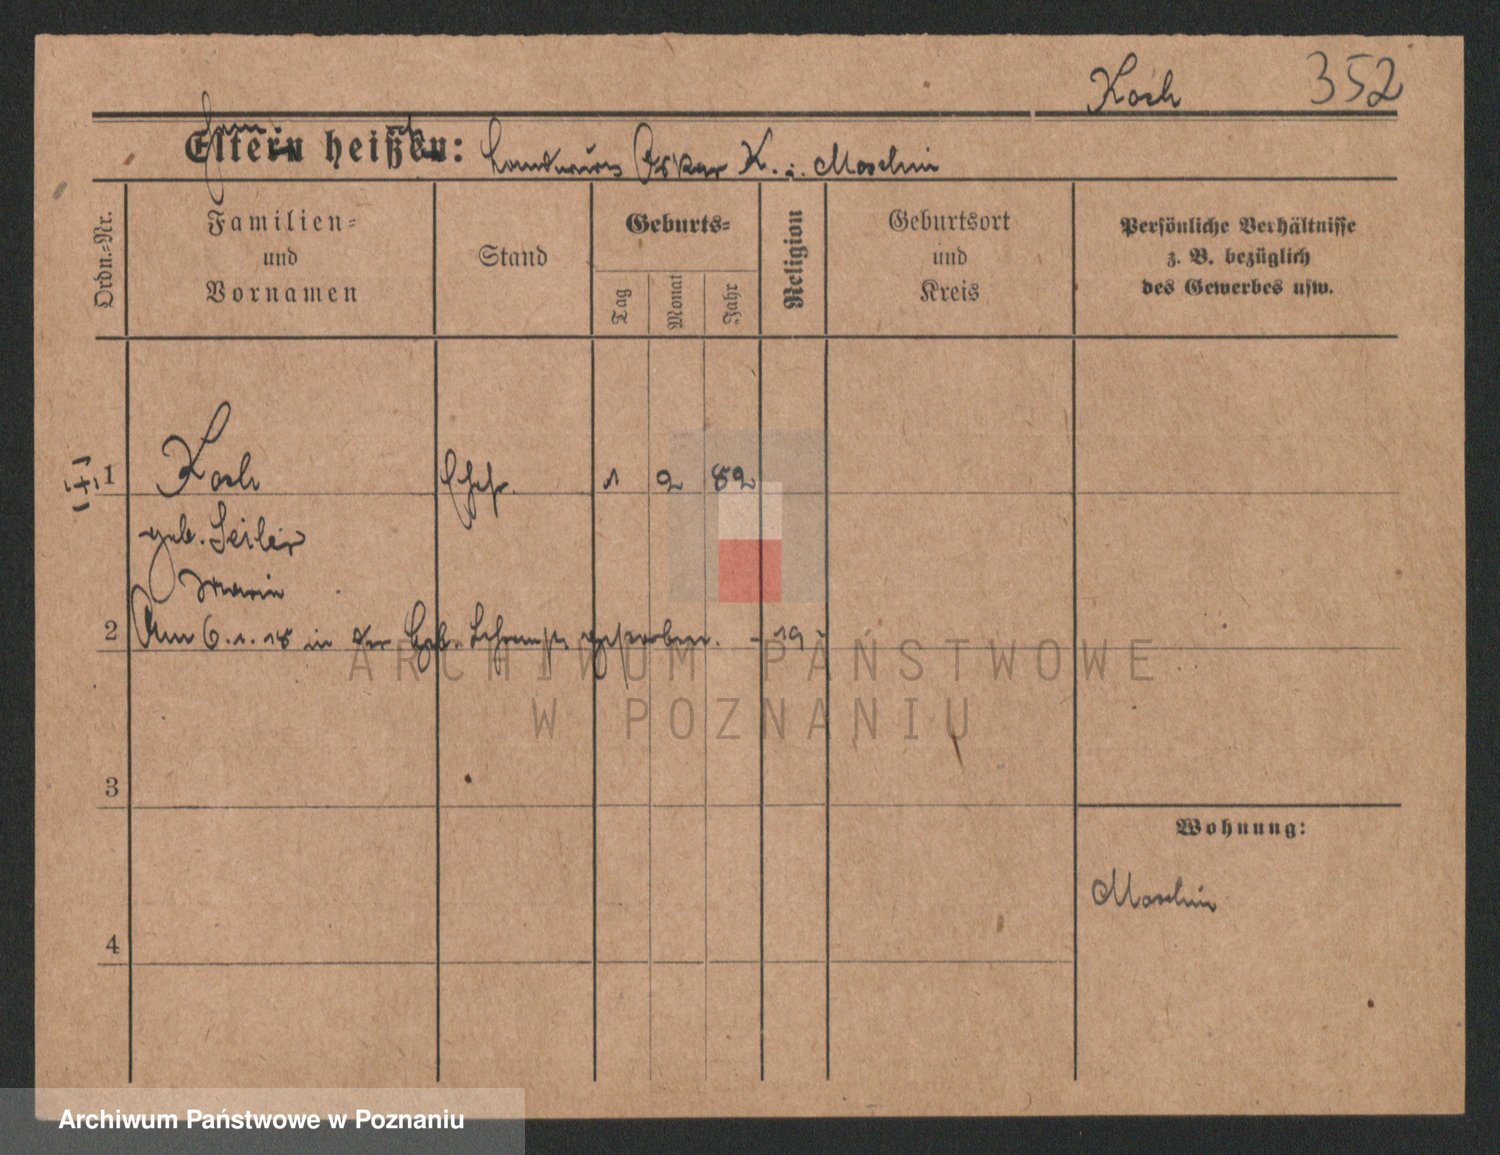 Koch 352
Eltern heißen: Landwirts Oskar K. i. Moschin
Ordn.-Nr.
Familien-
und
Vornamen
Stand
Geburts-
Tag
Monat
Jahr
Religion
Geburtsort
und
Kreis
Persönliche Verhältnisse
z. B. bezüglich
des Gewerbes usw.
1 Koch Ehefr. 1 2 82
geb. Seiler
Maria
2 Am 6.1.18 in der Geb. gestorben. - 19 -
3
4
Wohnung:
Moschin
ARCHIWUM PAŃSTWOWE
W POZNANIU
Archiwum Państwowe w Poznaniu